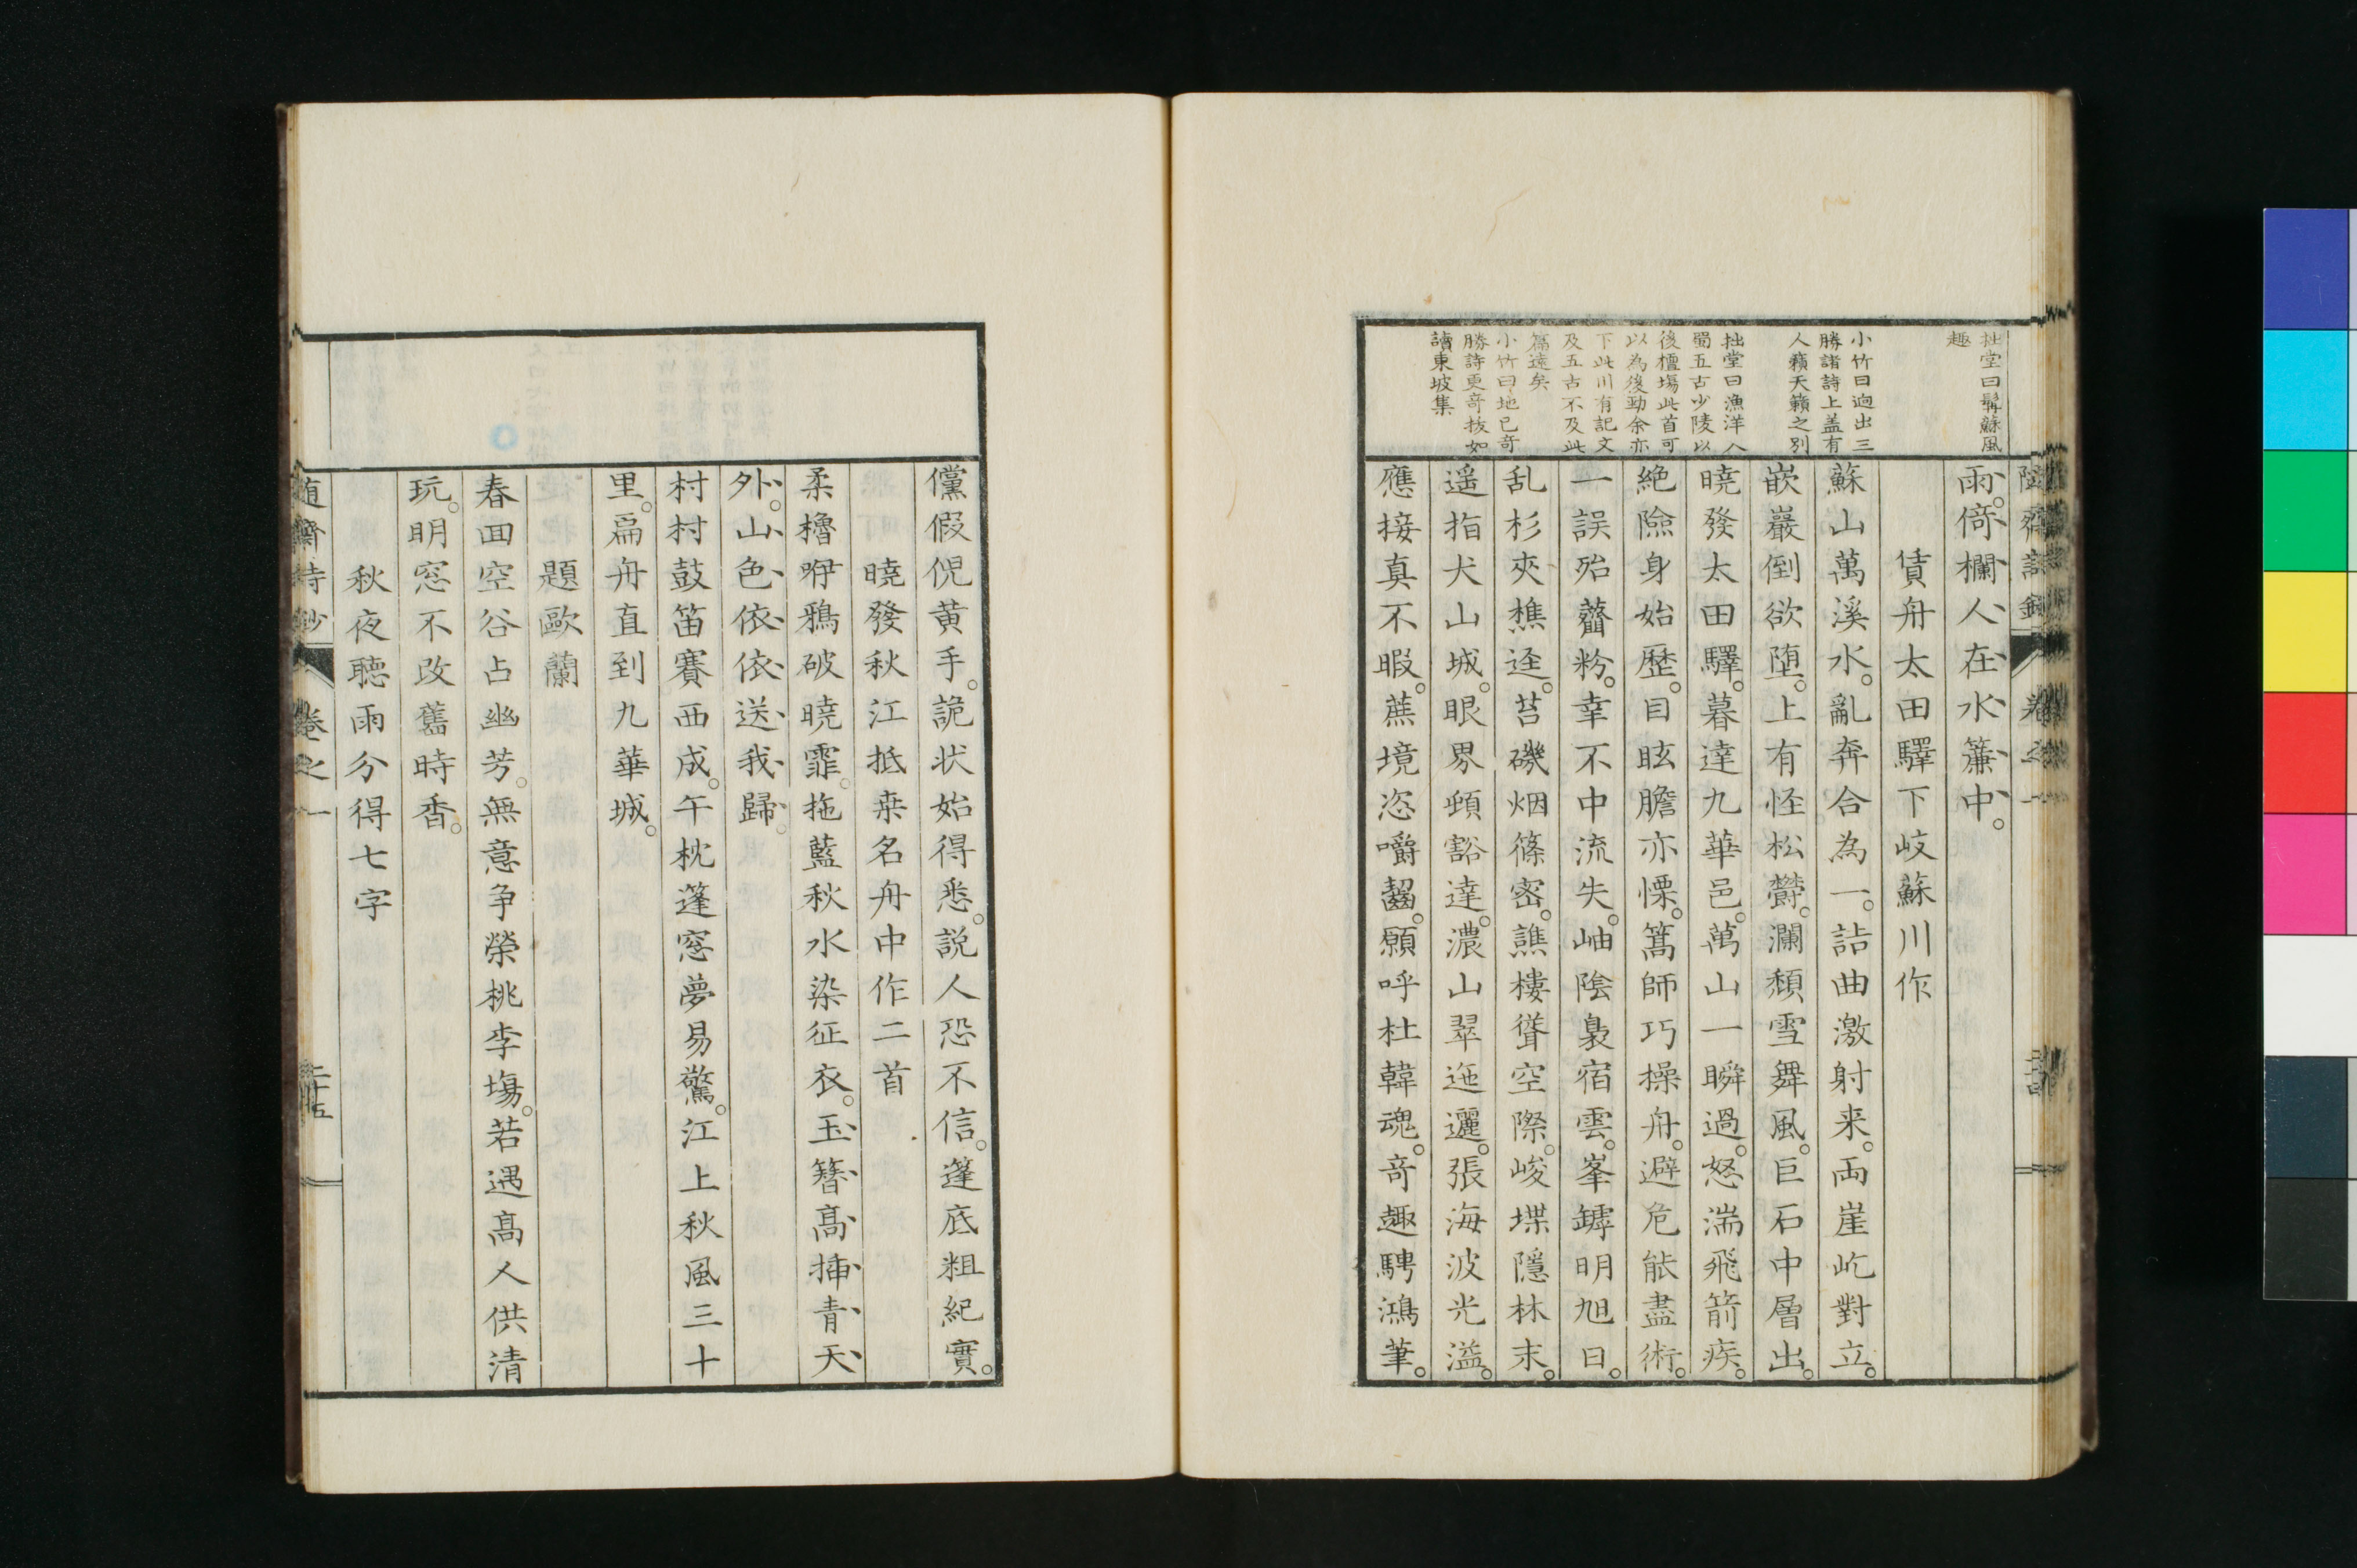 拙堂曰髯蘇風
趣
小竹曰逈出三
勝諸詩上盖有
人籟天籟之別
拙堂曰漁洋入
蜀五古少陵以
後檀塲此首可
以為後勁余亦
下此川有記文
及五古不及此
篇遠矣
小竹曰地已奇
勝詩更奇抜如
讀東坡集
雨。倚欄人在水簾中。
賃舟太田驛下岐蘇川作
蘇山萬溪水。亂奔合為一。詰曲激射来。両崖屹對立。
嵌巖倒欲堕。上有怪松欝。瀾頽雪舞風。巨石中層出。
曉發太田驛。暮達九華邑。萬山一瞬過。怒湍飛箭疾。
絶險身始歷。目眩膽亦慄。篙師巧操舟。避危能盡術。
一誤殆虀粉。幸不中流失。岫陰裊宿雲。峯罅明旭日。
乱杉夾樵逕。苔磯烟篠密。譙樓聳空際。峻堞隱林末。
遥指犬山城。眼界頓豁達。濃山翠迤邐。張海波光溢。
應接真不暇。蔗境恣嚼齧。願呼杜韓魂。奇趣騁鴻筆。
卷之一
儻假倪黄手。詭状始得悉。説人恐不信。篷底粗紀實。
曉發秋江抵桒名舟中作二首
柔櫓咿鴉破曉霏。拖藍秋水染征衣。玉簪高插青天
外。山色依依送我歸。
村村鼓笛賽西成。午枕蓬窓夢易驚。江上秋風三十
里。扁舟直到九華城。
題歐蘭
春回空谷占幽芳。無意争榮桃李塲。若遇高人供清
玩。明窓不改舊時香。
秋夜聽雨分得七字
卷之一
二十五